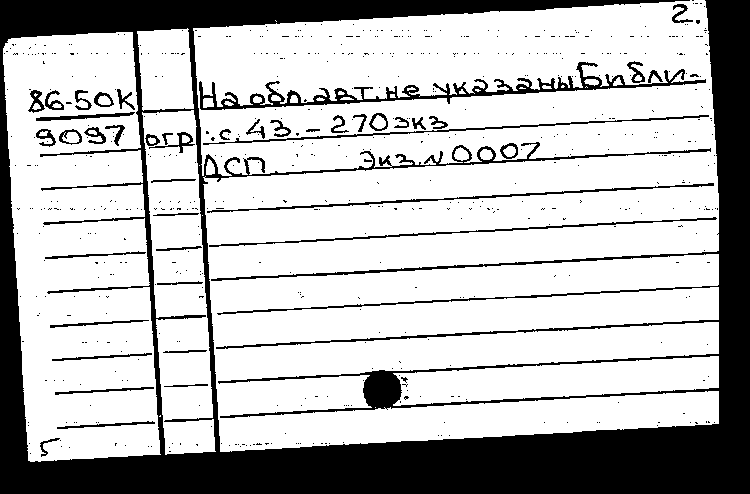 2.
86-50К На обл. авт. не указаны Библи-
9097 огр.: с. 43. – 270 экз
ДСП Экз. N 0007
5